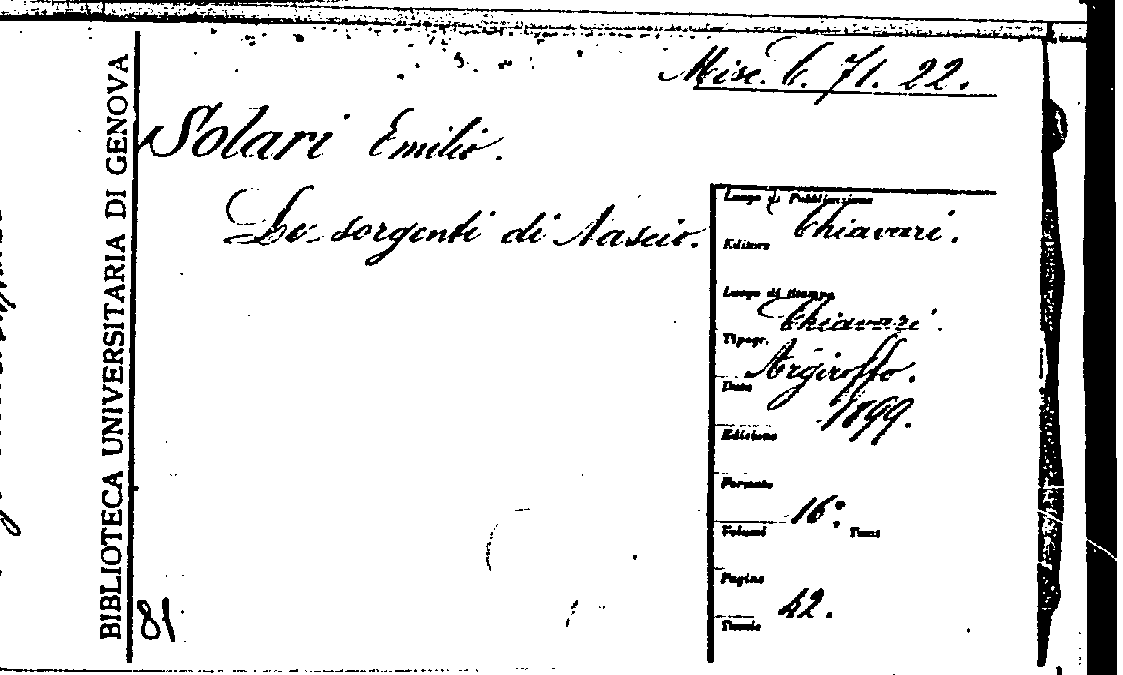 Misc. C. 71. 22.
BIBLIOTECA UNIVERSITARIA DI GENOVA
Solari Emilio.
Le sorgenti di Nascio.
Luogo di Pubblicazione
Chiavari.
Editore
Luogo di Stampa
Chiavari.
Tipogr.
Argiroffo.
Data
1899.
Edizione
Formato
16°.
Volumi Tomi
Pagine
42.
Tavole
81